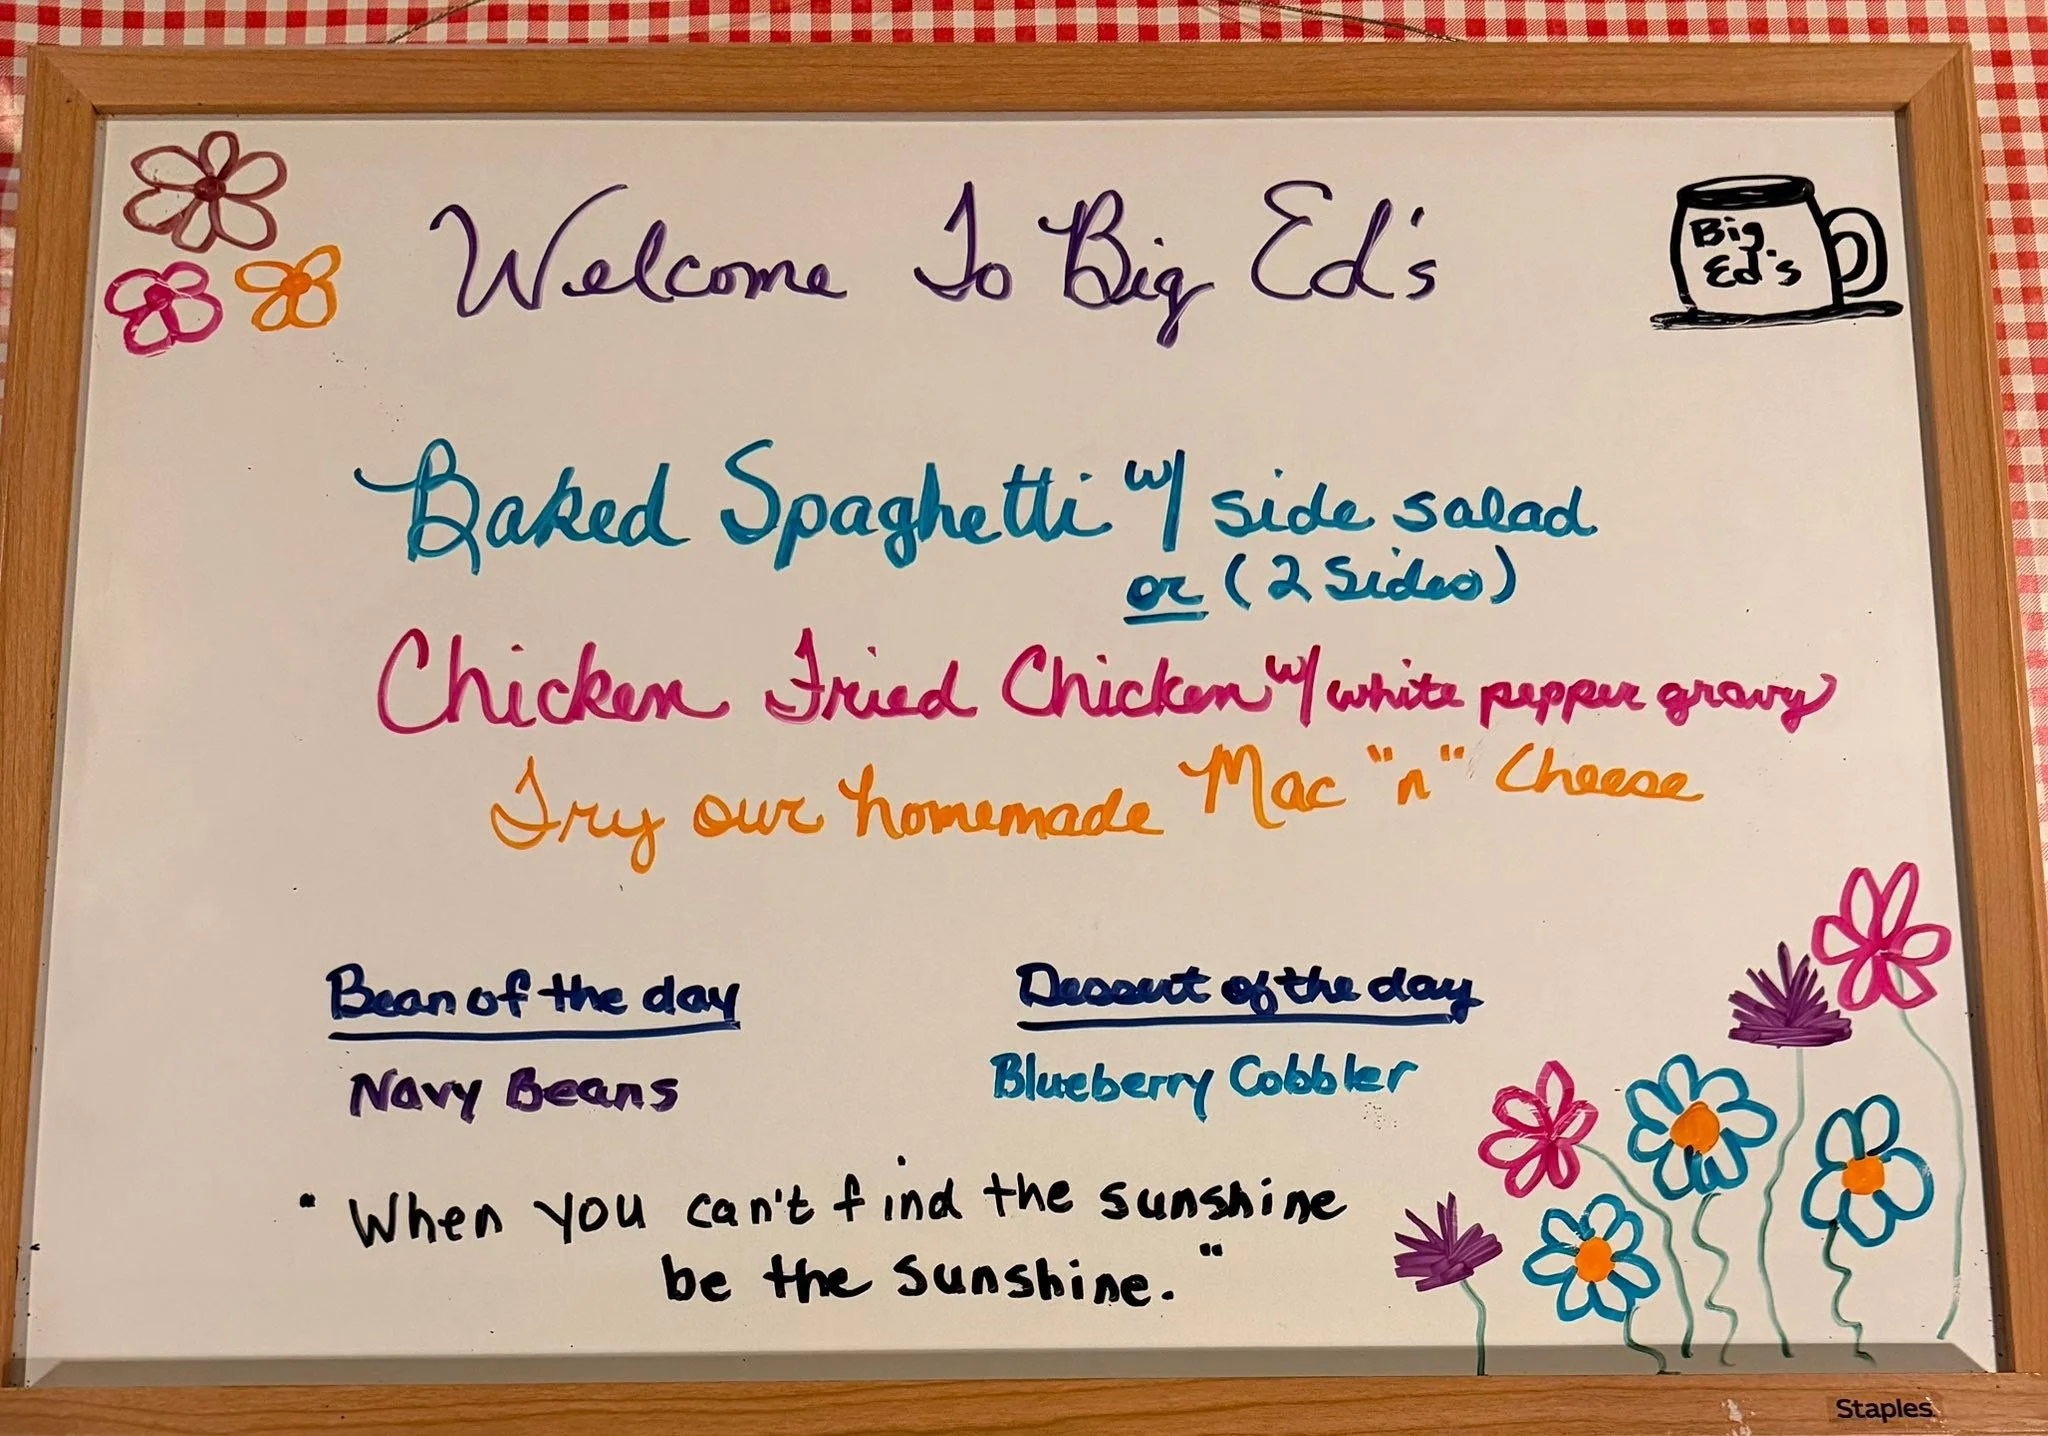 Welcome To Big Ed's
Big
Ed's
Baked Spaghetti w/ side salad
or (2 Sides)
Chicken Fried Chicken w/ white pepper gravy
Try our homemade Mac "n" Cheese
Bean of the day
Navy Beans
Dessert of the day
Blueberry Cobbler
"When you can't find the sunshine
be the sunshine."
Staples